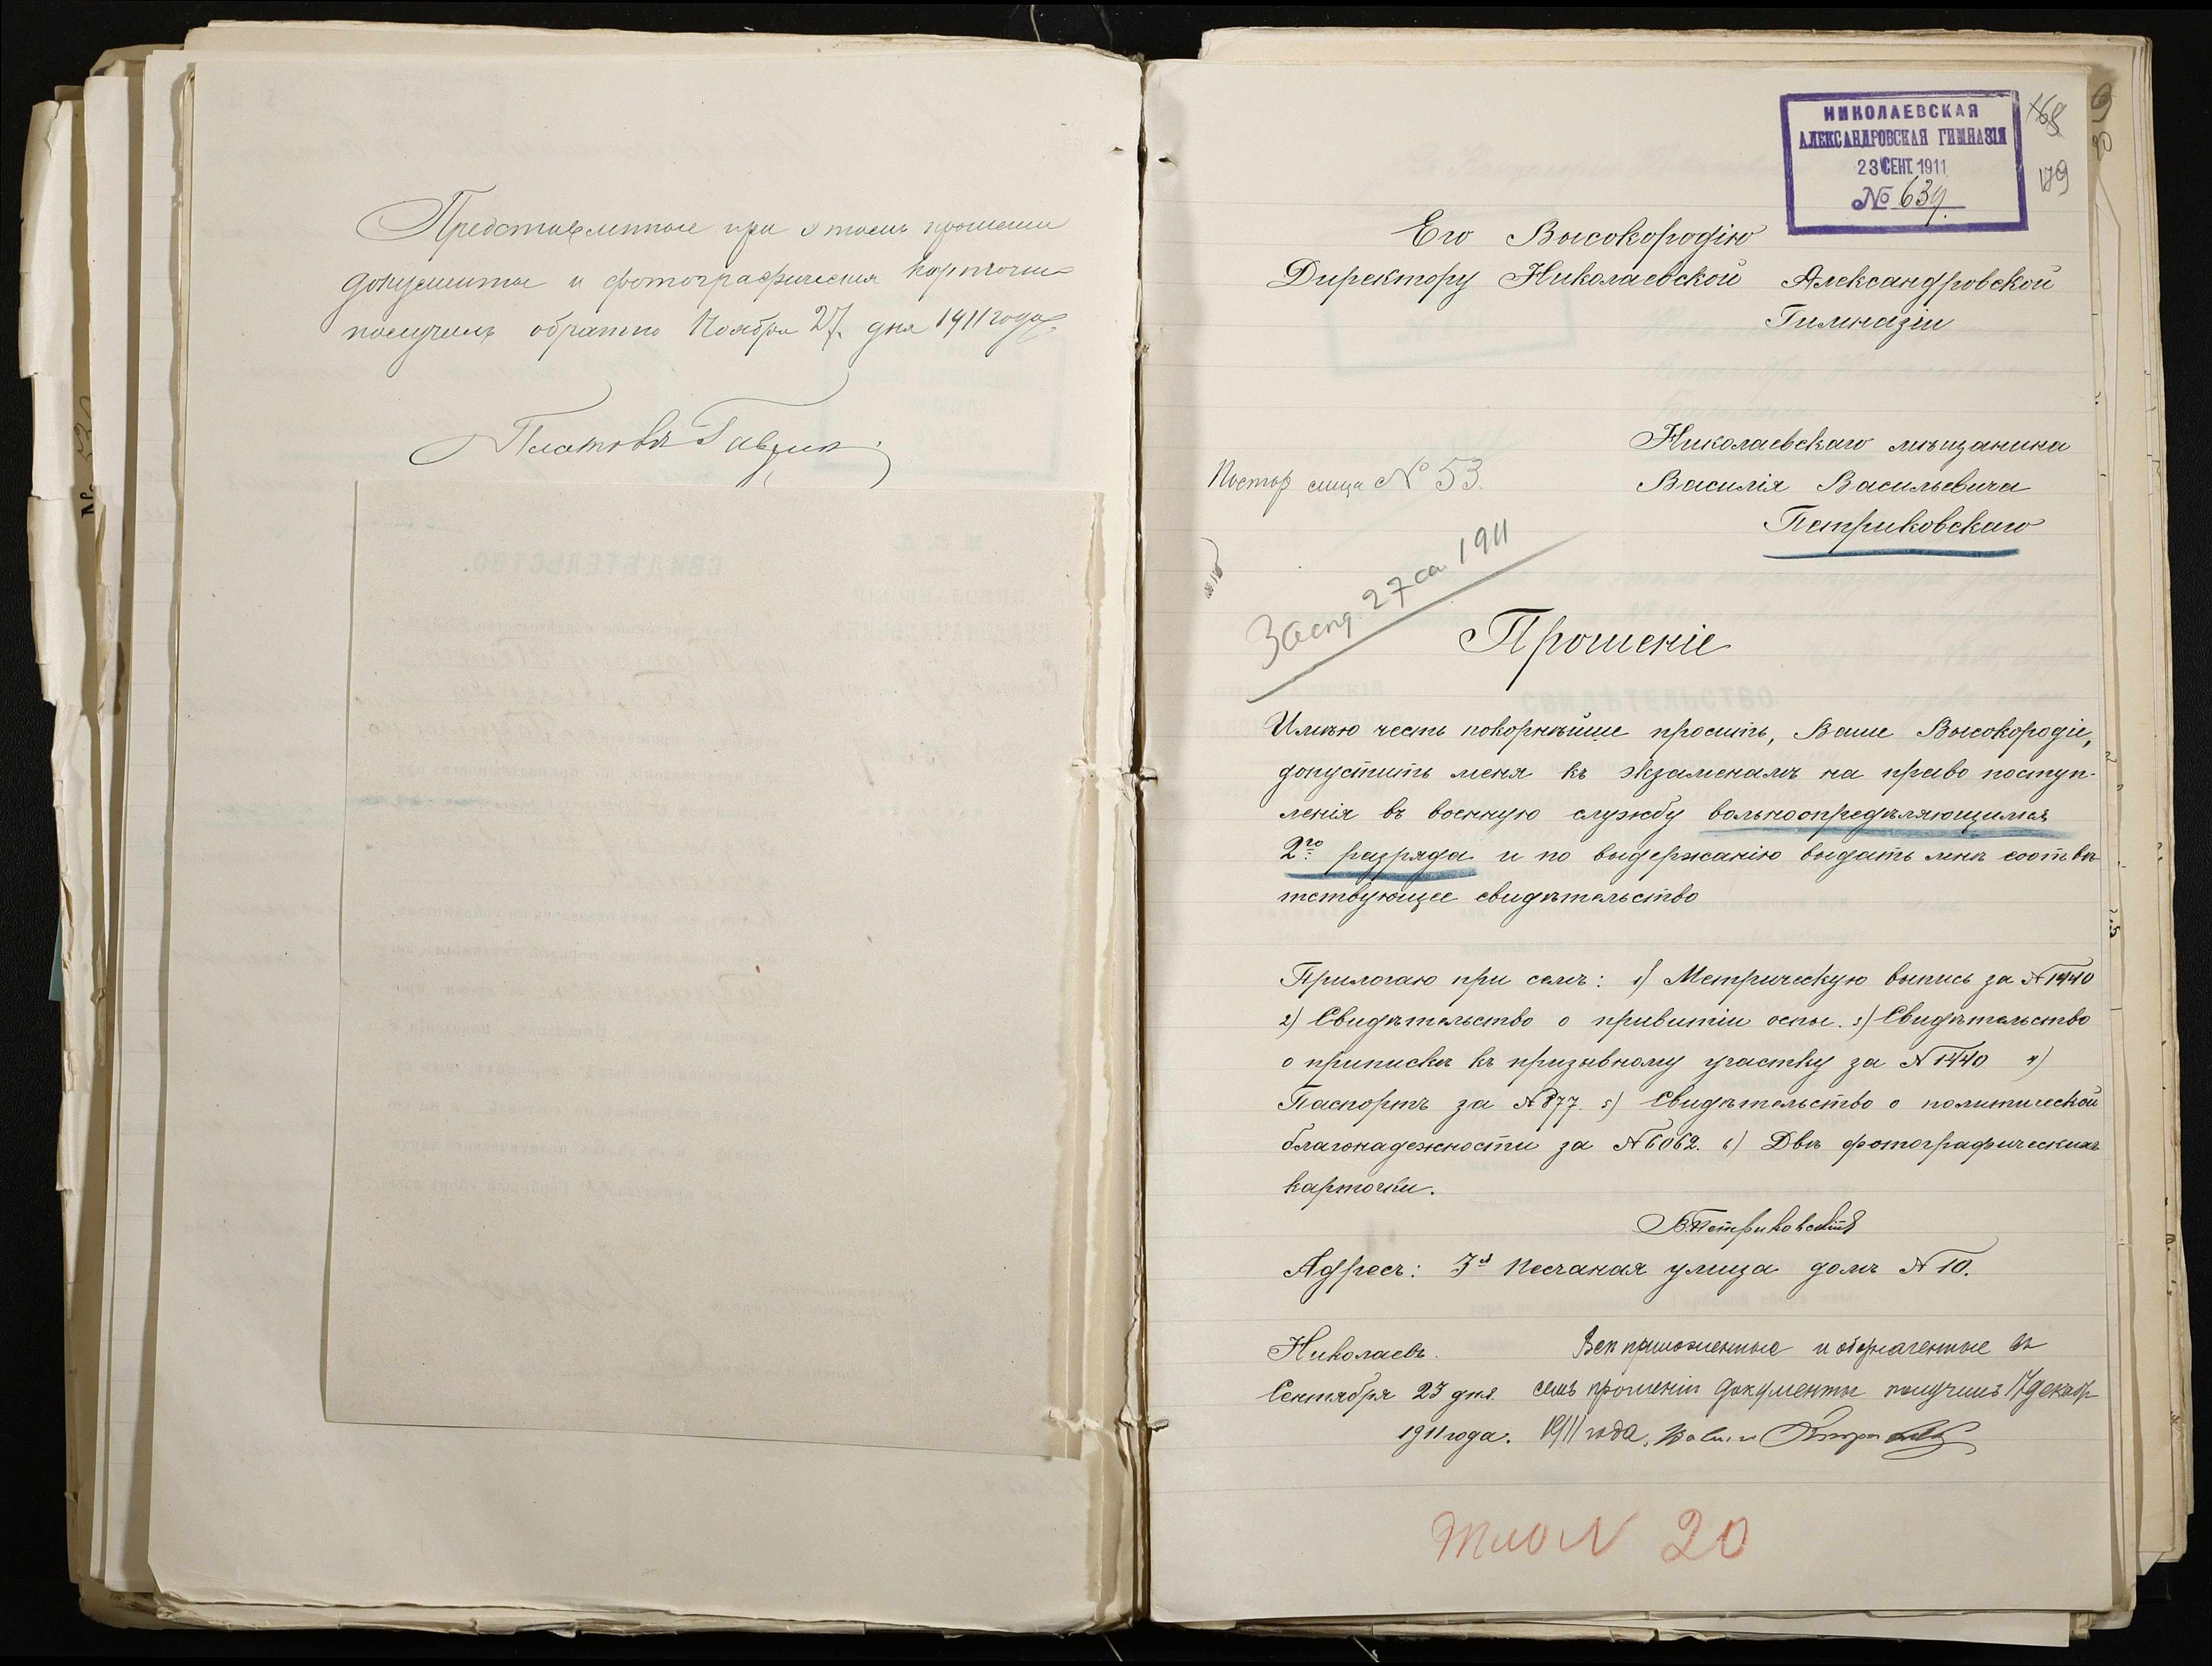 Представленные при этомъ прошеніи
документы и фотографическія карточки
получилъ обратно Ноября 27 дня 1911 года
Платовъ Гавріил
НИКОЛАЕВСКАЯ
АЛЕКСАНДРОВСКАЯ ГИМНАЗІЯ
23 СЕНТ. 1911
№ 639.
168
179
Его Высокородію
Директору Николаевской Александровской
Гимназіи
Николаевскаго мѣщанина
Василія Васильевича
Петриковскаго
Постор лица № 53.
27 1911
Прошеніе
Имѣю честь покорнѣйше просить, Ваше Высокородіе,
допустить меня къ экзаменамъ на право поступ-
ленія въ военную службу вольноопредѣляющимся
2го разряда и по выдержанію выдать мнѣ соотвѣ-
тствующее свидѣтельство
Прилогаю при семъ: 1) Метрическую выпись за № 1440
2) Свидѣтельство о привитіи оспы. 3) Свидѣтельство
о припискѣ къ призывному участку за № 1440 4)
Паспортъ за № 877. 5) Свидѣтельство о политической
благонадежности за № 6062. 6) Двѣ фотографическихъ
карточки.
В. Петриковскій
Адресъ: 3я Песчаная улица домъ № 10.
Николаевъ.
Сентября 23 дня
1911 года.
Всѣ приложенные и обозначенные въ
семъ прошеніи документы получилъ 17 декабр
1911 года.
№ 20